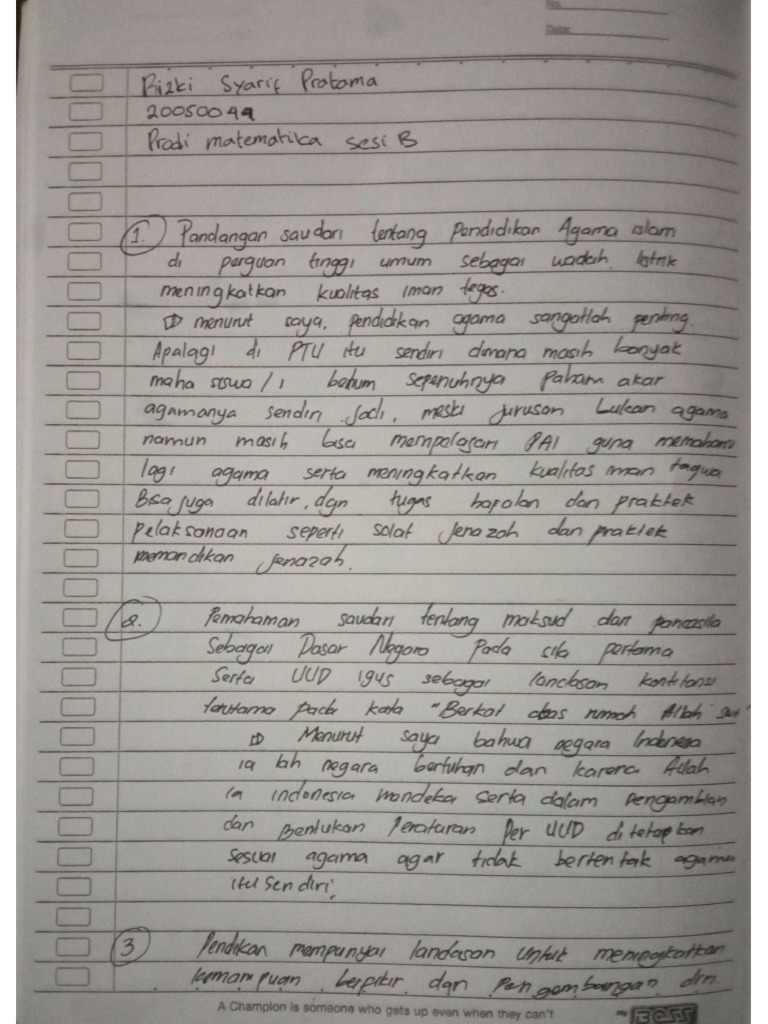 No.
Date:
Rizki Syarif Pratama
20050049
Prodi matematika sesi B
1. Pandangan saudari tentang Pendidikan Agama islam
di perguan tinggi umum sebagai wadah
meningkatkan kualitas iman tegas.
menurut saya, pendidikan agama sangatlah penting.
Apalagi di PTU itu sendiri dimana masih banyak
maha siswa/i belum sepenuhnya paham akar
agamanya sendiri. Jadi, meski jurusan bukan agama
namun masih bisa mempelajari PAI guna memahami
lagi agama serta meningkatkan kualitas iman taqwa
Bisa juga dilatir, dgn tugas hapalan dan praktek
pelaksanaan seperti solat Jenazah dan praktek
memandikan jenazah.
2. Pemahaman saudari tentang maksud dari pancasila
Sebagai Dasar Negara Pada sila pertama
Serta UUD 1945 sebagai landasan
terutama pada kata "Berkat atas rumah Allah
Menurut saya bahwa negara Indonesia
ia lah negara bertuhan dan karena Allah
la indonesia merdeka serta dalam pengambilan
dan Bentukan Peraturan Per UUD di tetapkan
Sesuai agama agar tidak bertentak agama
itu sendiri,
3 Pendikan mempunyai landasan untuk meningkatkan
kemampuan berpikir dan pengembangan
A Champion is someone who gets up even when they can't
BOSS